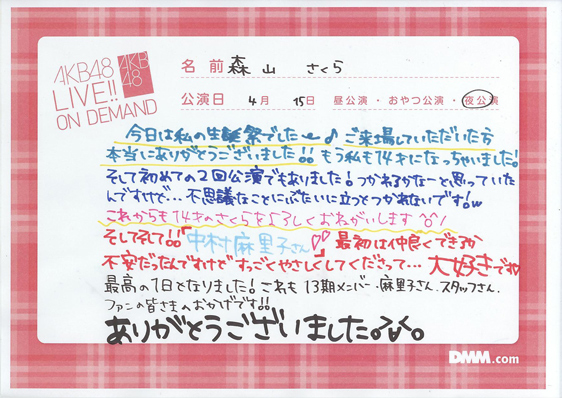 AKB48
LIVE!!
ON DEMAND
AKB
48
名前 森山 さくら
公演日 4月 15日 昼公演・おやつ公演・夜公演
今日は私の生誕祭でした〜♪ ご来場していただいた方
本当にありがとうございました!! もう私も14才になっちゃいました!
そして初めての2回公演でもありました! つかれるかなーと思っていた
んですけど… 不思議なことにぶたいに立つとつかれないです!
これからも14才のさくらをよろしくおねがいします
そしてそして!!「中村麻里子さん」♡♡ 最初は仲良くできるか
不安だったんですけどすっごくやさしくしてくださって… 大好きです♡
最高の1日となりました! これも13期メンバー・麻里子さん、スタッフさん、
ファンの皆さまのおかげです!!
ありがとうございました。
DMM.com